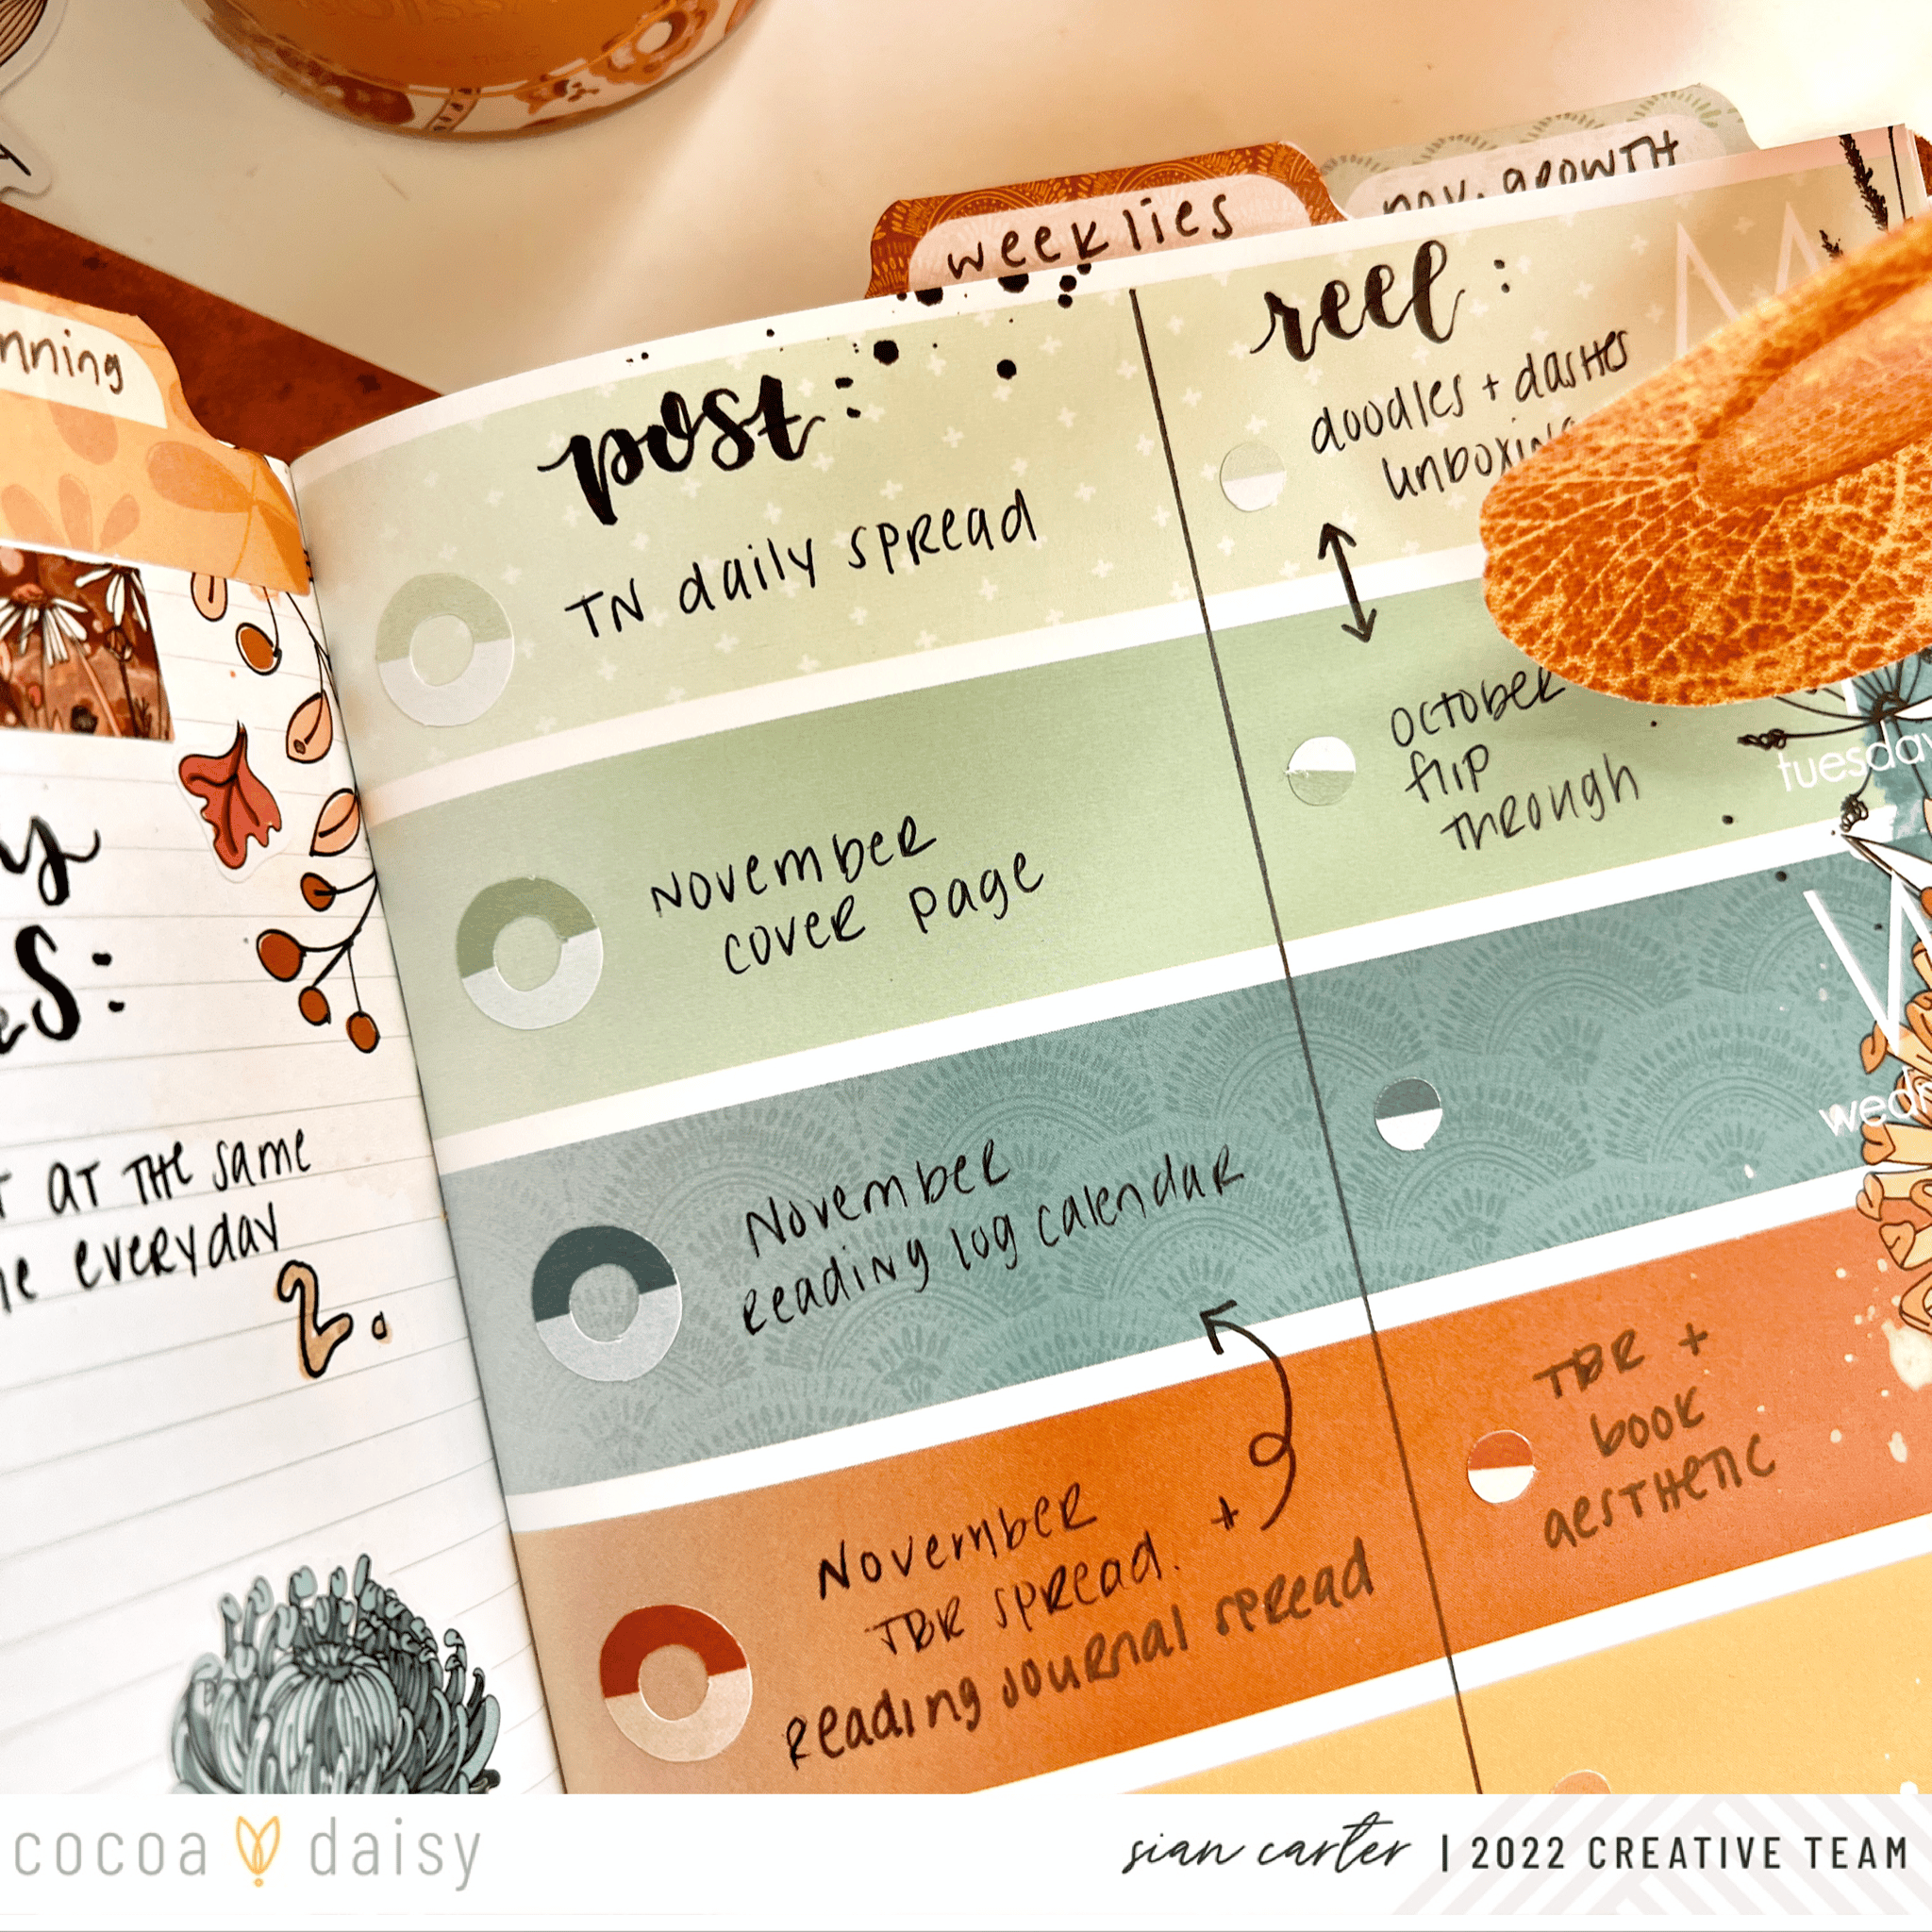 weeklies
nov. growth
nning
post:
TN daily spread
November
cover page
November
reading log calendar
November
TBR spread. +
reading journal spread
reel:
doodles + dashes
unboxing
October
flip
through
TBR +
book
aesthetic
M
tuesday
W
wedn
y
es:
T AT THE same
me everyday
2.
cocoa daisy
sian carter | 2022 CREATIVE TEAM